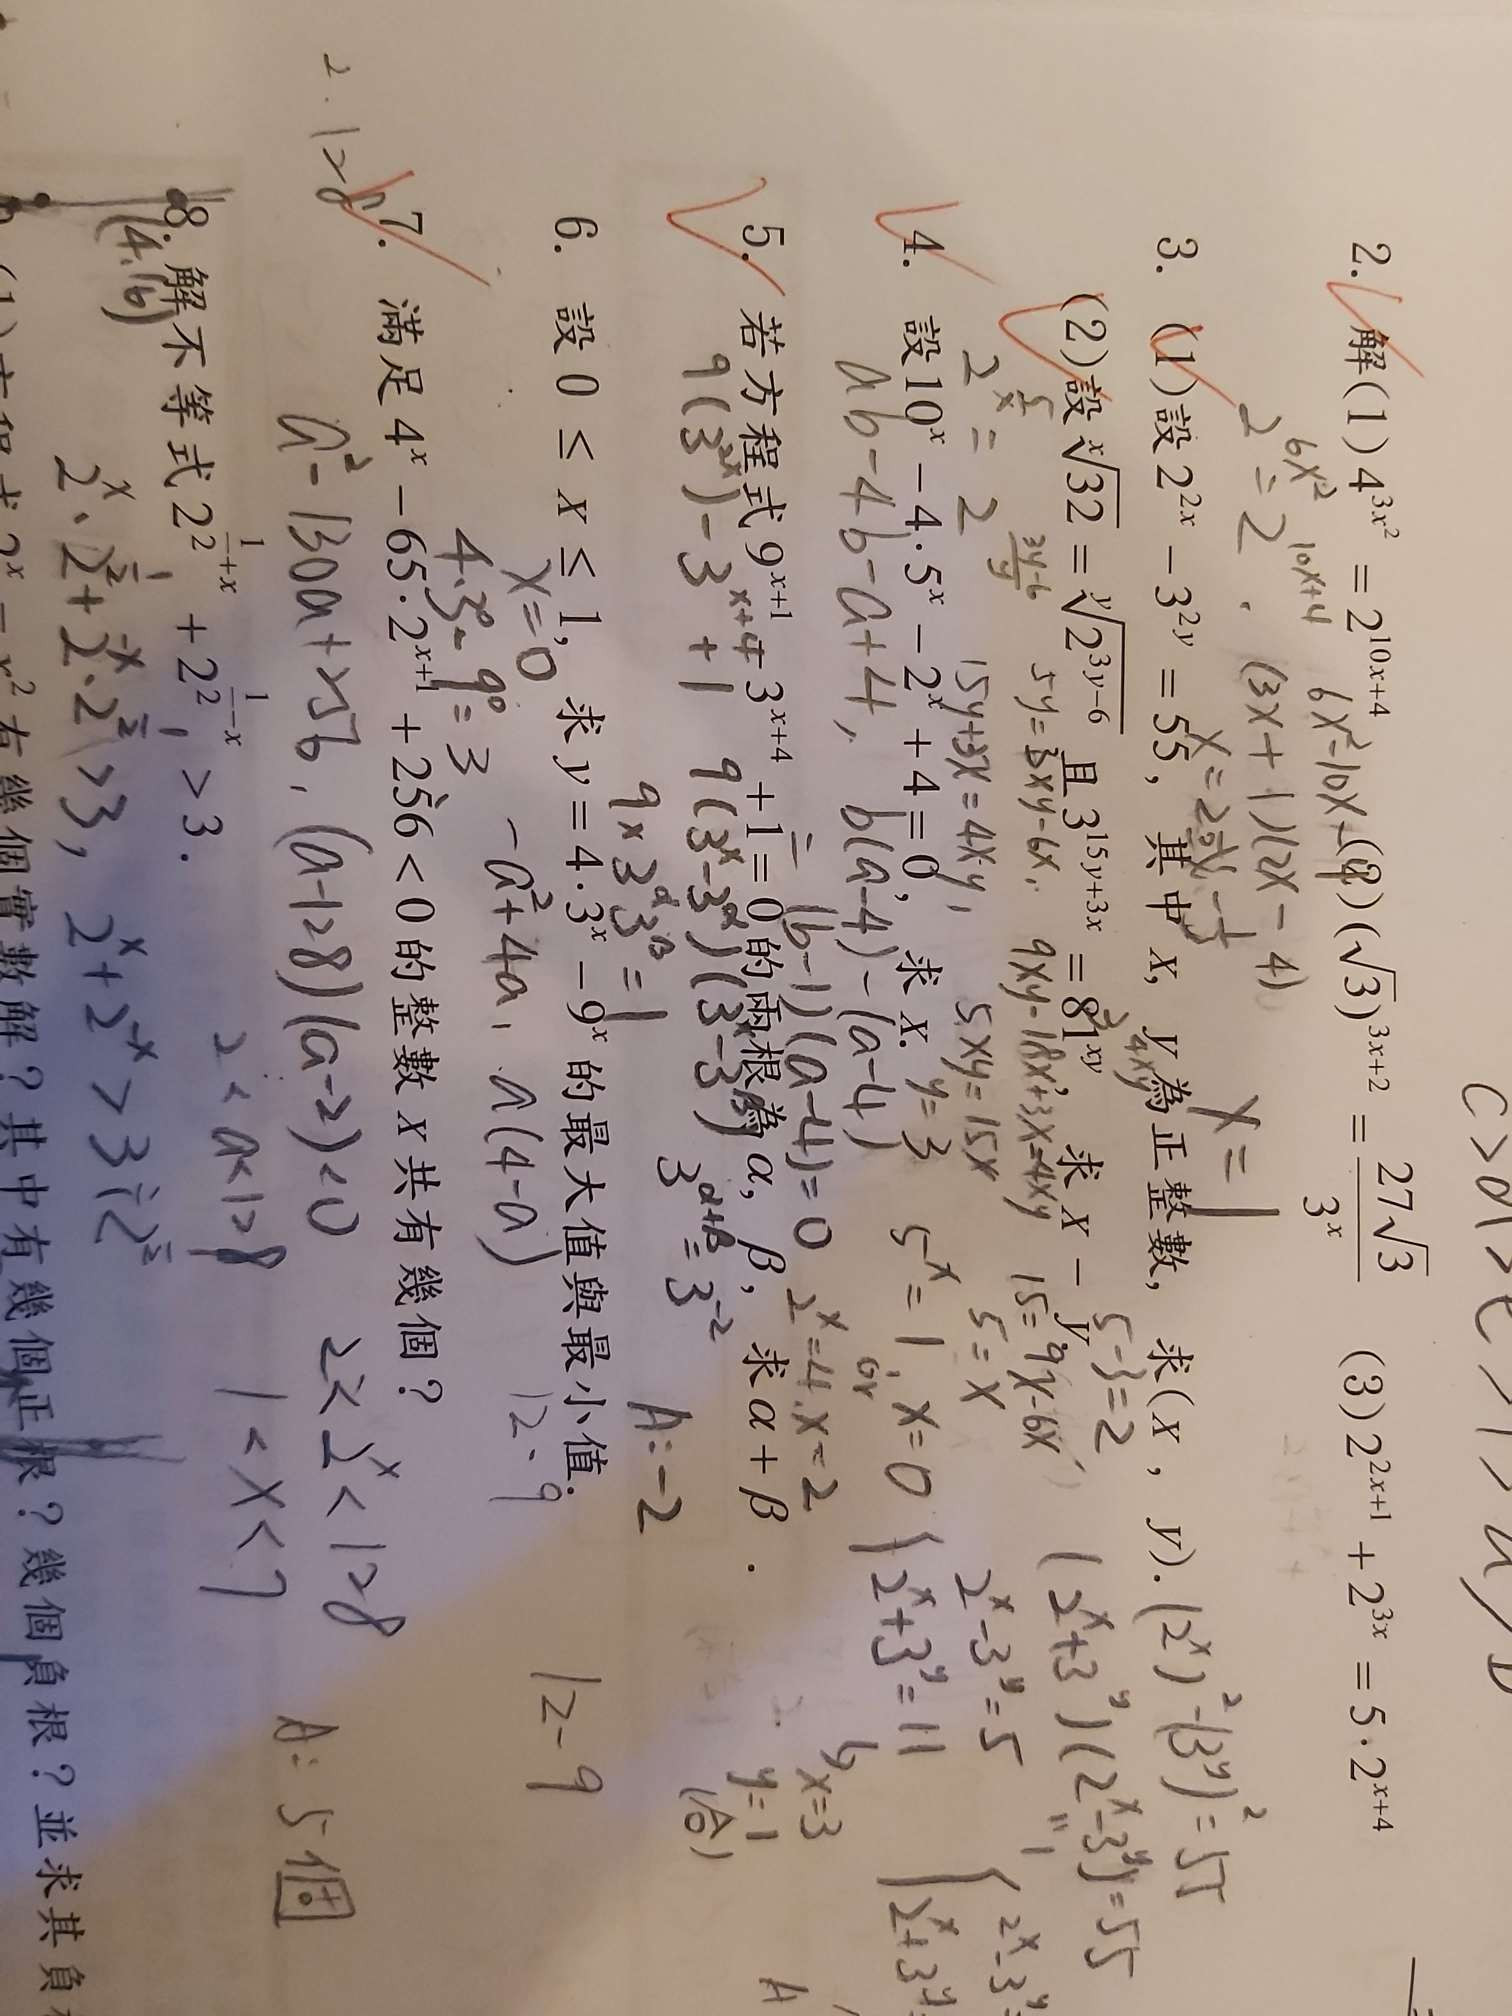 C > d > E > 1 > a > b
2. 解(1) 4^{3x^2} = 2^{10x+4} (2) (√3)^{3x+2} = 27√3 / 3^x (3) 2^{2x+1} + 2^{3x} = 5·2^{x+4}
2^{6x^2} = 2^{10x+4}
(3x+1)(2x-4)
x=1
3. (1)設 2^{2x} - 3^{2y} = 55, 其中 x, y 為正整數, 求(x, y).
(2^x)^2-(3^y)^2=55
(2)設 \sqrt[x]{32} = \sqrt[y]{2^{3y-6}} 且 3^{15y+3x} = 81^{xy}, 求 x - y.
5-3=2
(2^x+3^y)(2^x-3^y)=55
2^{5/x} = 2^{(3y-6)/y}
5y=3xy-6x,
9xy-18x+3x=4xy
15=9x-6x
15y+3x=4xy,
5xy=15x
5=x
2^x-3^y=5
4. 設 10^x - 4·5^x - 2^x + 4 = 0, 求 x.
y=3
5^x=1, x=0
2^x+3^y=11
ab-4b-a+4,
b(a-4)-(a-4)
or
(b-1)(a-4)=0
2^x=4, x=2
x=3
y=1
(A)
5. 若方程式 9^{x+1} - 3^{x+4} + 1 = 0 的兩根為 α, β, 求 α + β.
9(3^{2x})-3^{x+4}+1
9(3^x-3^α)(3^x-3^β)
3^{α+β}=3^{-2}
9×3^α 3^β=1
A:-2
6. 設 0 ≤ x ≤ 1, 求 y = 4·3^x - 9^x 的最大值與最小值.
x=0
12-9
4·3^0-9^0=3
-a^2+4a, a(4-a)
12-9
7. 滿足 4^x - 65·2^{x+1} + 256 < 0 的整數 x 共有幾個?
2·128
a^2-130a+256, (a-128)(a-2)<0
2<2^x<128
A:5個
2<a<128
1<x<7
8. 解不等式 2^{1/2+x} + 2^{1/2-x} > 3.
(4.16)
2^x·2^{1/2}+2^{-x}·2^{1/2}>3, 2^x+2^{-x}>3÷2^{1/2}
(1)方程式 2^x = x^2 有幾個實數解?其中有幾個正根?幾個負根?並求其負